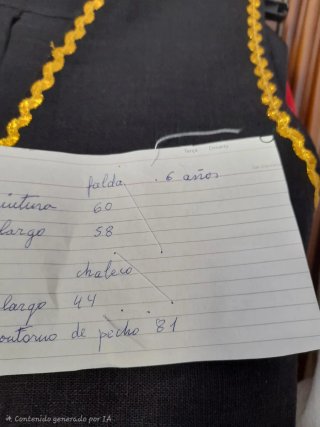 falda . 6 años
cintura 60
largo 58
chaleco
largo 44
contorno de pecho 81
Contenido generado por IA